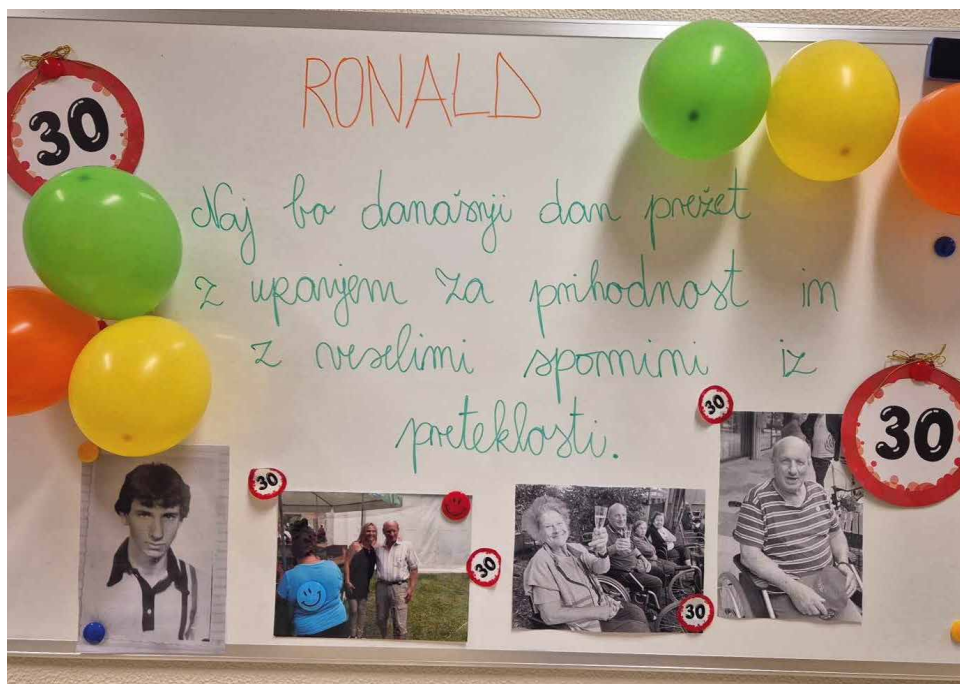 30
RONALD
Naj bo današnji dan prežet
z upanjem za prihodnost in
z veselimi spomini iz
preteklosti.
30
30
30
30
30